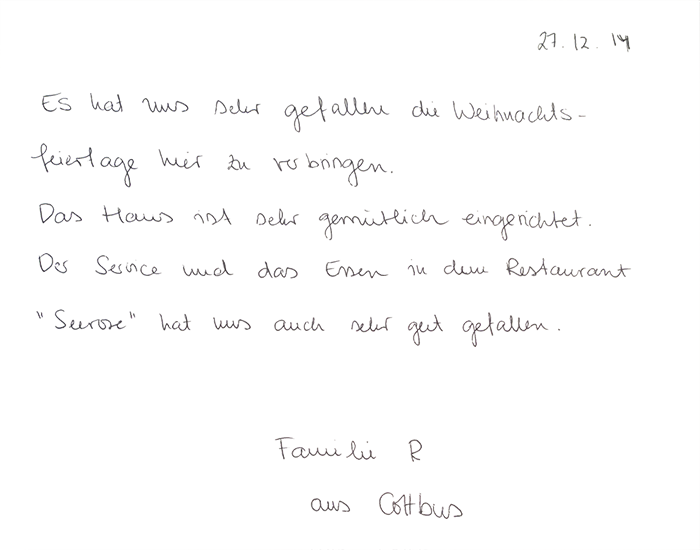 27.12.14
Es hat uns sehr gefallen die Weihnachts-
feiertage hier zu verbringen.
Das Haus ist sehr gemütlich eingerichtet.
Der Service und das Essen in dem Restaurant
"Seerose" hat uns auch sehr gut gefallen.
Familie R
aus Cottbus